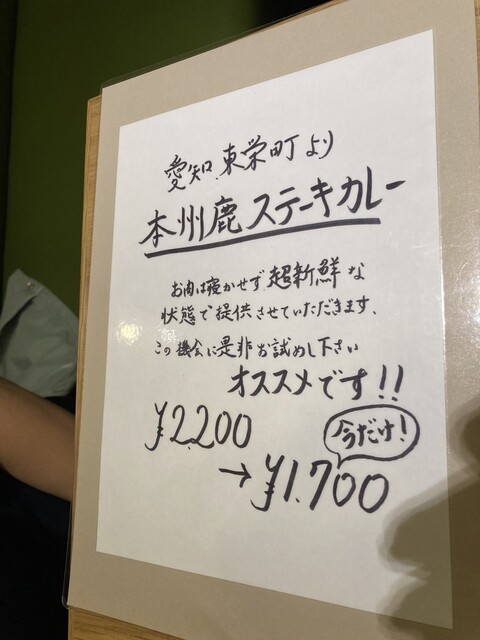 愛知、東栄町より
本州鹿ステーキカレー
お肉は寝かせず超新鮮な
状態で提供させていただきます、
この機会に是非お試め し下さい
オススメです!!
¥2,200
今だけ!
→¥1,700